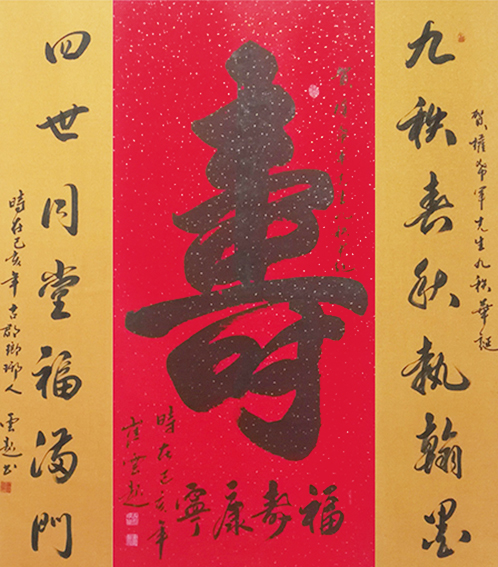 賀權希軍先生九秩華誕
九秩春秋執翰墨
壽
福壽康寧
時在己亥年
四世同堂福滿門
時在己亥年古郡瑯琊人